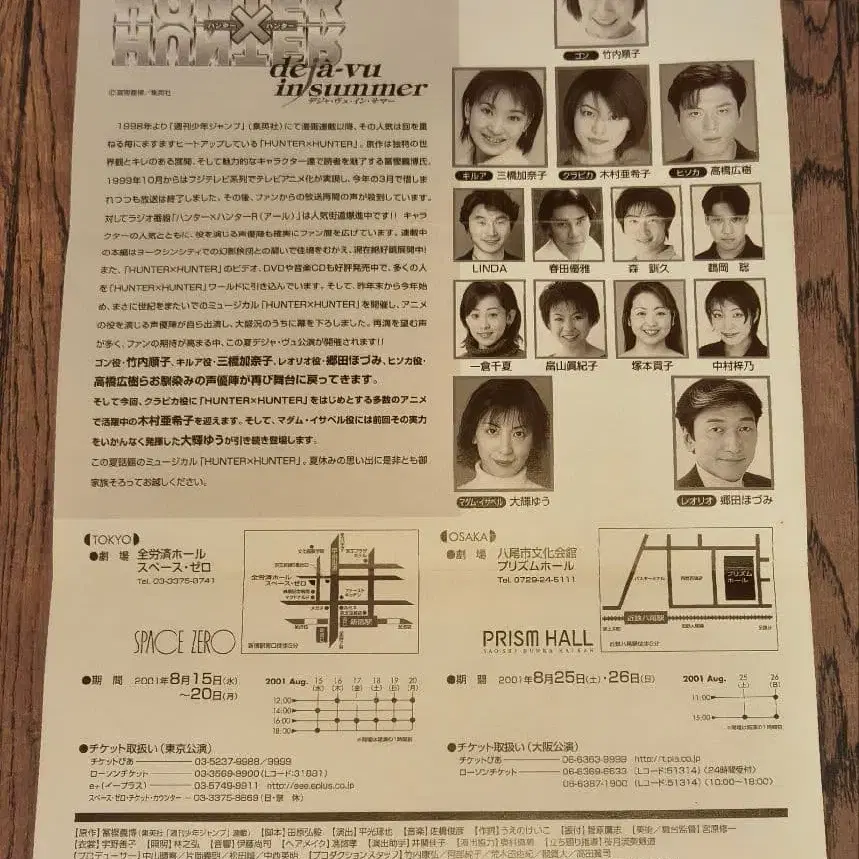 HUNTER×HUNTER
ハンター ハンター
déjà-vu
in summer
デジャ・ヴュ・イン・サマー
©冨樫義博/集英社
1998年より「週刊少年ジャンプ」(集英社)にて漫画連載以降、その人気は回を重
ねる毎にますますヒートアップしている「HUNTER×HUNTER」。原作は独特の世
界観とキレのある展開、そして魅力的なキャラクター達で読者を魅了する冨樫義博氏。
1999年10月からはフジテレビ系列でテレビアニメ化が実現し、今年の3月で惜しま
れつつも放送は終了しました。その後、ファンからの放送再開の声が殺到しています。
対してラジオ番組「ハンター×ハンターR(アール)」は人気街道爆進中です!! キャラ
クターの人気とともに、役を演じる声優陣も確実にファン層を広げています。連載中
の本編はヨークシンシティでの幻影旅団との闘いで佳境をむかえ、現在絶好調展開中!
また、「HUNTER×HUNTER」のビデオ、DVDや音楽CDも好評発売中で、多くの人
を「HUNTER×HUNTER」ワールドに引き込んでいます。そして、昨年末から今年始
め、まさに世紀をまたいでのミュージカル「HUNTER×HUNTER」を開催し、アニメ
の役を演じる声優陣が自ら出演し、大盛況のうちに幕を下ろしました。再演を望む声
が多く、ファンの期待が高まる中、この夏デジャ・ヴュ公演が開催されます!!
ゴン役・竹内順子、キルア役・三橋加奈子、レオリオ役・郷田ほづみ、ヒソカ役・
高橋広樹らお馴染みの声優陣が再び舞台に戻ってきます。
そして今回、クラピカ役に「HUNTER×HUNTER」をはじめとする多数のアニメ
で活躍中の木村亜希子を迎えます。そして、マダム・イサベル役には前回その実力
をいかんなく発揮した大輝ゆうが引き続き登場します。
この夏話題のミュージカル「HUNTER×HUNTER」。夏休みの思い出に是非とも御
家族そろってお越しください。
ゴン 竹内順子
キルア 三橋加奈子
クラピカ 木村亜希子
ヒソカ 高橋広樹
LINDA
春田優雅
森 訓久
鶴岡 聡
一倉千夏
畠山眞紀子
塚本貢子
中村梓乃
マダム・イサベル 大輝ゆう
レオリオ 郷田ほづみ
TOKYO
●劇 場 全労済ホール
スペース・ゼロ
Tel. 03-3375-8741
SPACE ZERO
全労済ホール
スペース・ゼロ
新宿駅
新宿駅南口徒歩5分
●期 間 2001年8月15日(水)
~20日(月)
2001 Aug. 15 16 17 18 19 20
(水) (木) (金) (土) (日) (月)
12:00
14:00
16:00
18:00
※開場は開演の1時間前
●チケット取扱い(東京公演)
チケットぴあ 03-5237-9988/9999
ローソンチケット 03-3569-9900(Lコード:31881)
e+(イープラス) 03-5749-9911 http://eee.eplus.co.jp
スペース・ゼロ・チケット・カウンター 03-3375-8869(日・祭 休)
OSAKA
●劇 場 八尾市文化会館
プリズムホール
Tel. 0729-24-5111
PRISM HALL
YAO SHI BUNKA KAIKAN
バスターミナル
西武百貨店
プリズム
ホール
近鉄八尾駅
近鉄八尾駅徒歩5分
●期 間 2001年8月25日(土)・26日(日)
2001 Aug. 25 26
(土) (日)
11:00
15:00
※開場は開演の1時間前
●チケット取扱い(大阪公演)
チケットぴあ 06-6363-9999 http://t.pia.co.jp
ローソンチケット 06-6369-6633(Lコード:51314)(24時間受付)
06-6387-1900(Lコード:51314)(10:00~18:00)
【原作】冨樫義博(集英社「週刊少年ジャンプ」連載) 【脚本】田原弘毅 【演出】平光琢也 【音楽】佐橋俊彦 【作詞】うえのけいこ 【振付】菅原鷹志 【美術/舞台監督】宮原修一
【衣裳】宇野善子 【照明】林之弘 【音響】伊藤尚司 【ヘアメイク】馮啓孝 【演出助手】井関佳子